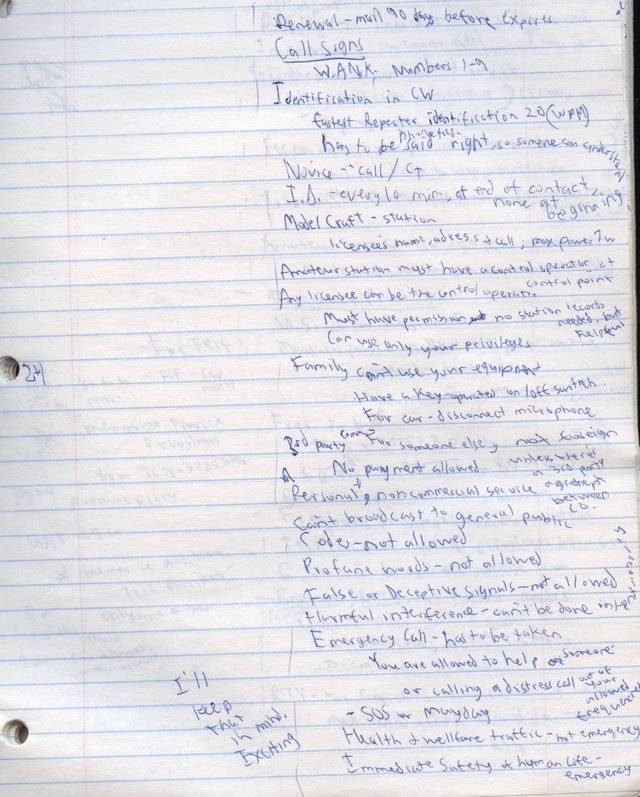 Renewal - mail 90 days before expires
Call Signs
W.A.N.K, Numbers 1-9
Identification in CW
fastest Repeater identification 20 (WPM)
phonetics
has to be said right, so someone can understand
Novice - call /
I.D. - every 10 min, at end of contact,
none at beginning
Model Craft - station
licensee's name, adress & call; max power
Amateur station must have a control operator at
control point
Any licensee can be the control operator.
Must have permission no station records
needed, but helpful
Can use only your privileges
24
Family can't use your equipment
Have a key operated on/off switch.
For car - disconnect microphone
3rd party comm. For someone else, not foreign
No payment allowed unless there
a 3rd party
Personal, noncommercial service agreement
between
Can't broadcast to general public
Codes - not allowed
Profane words - not allowed
False or Deceptive signals - not allowed
Harmful interference - can't be done intentionally
Emergency Call - has to be taken
You are allowed to help someone
or calling a distress call out of
your allowed frequency
- SOS or Mayday
Health & wellfare traffic - not emergency
Immediate Safety of human life -
emergency
I'll
Keep
that
in mind.
Exciting